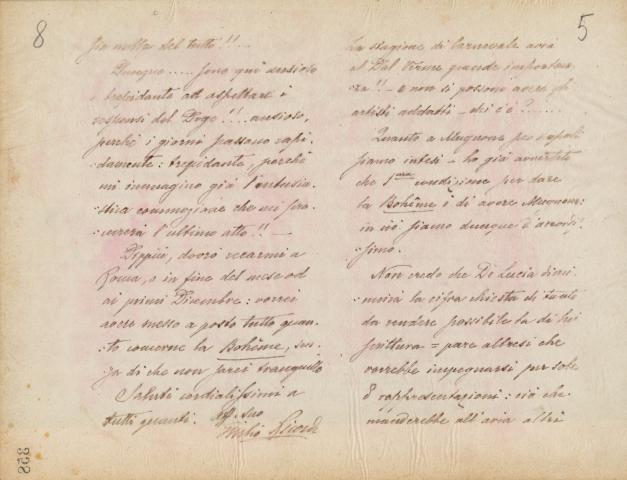 8
sia nulla del tutto!!...
Dunque..... sono qui ansioso
e trepidante ad aspettare i
responsi del Doge!!... ansioso,
perché i giorni passano rapi-
-damente: trepidante, perché
mi immagino già l'entusia-
-stica commozione che mi pro-
-curerà l'ultimo atto!! –
Dippiù, dovrò recarmi a
Roma, o in fine del mese od
ai primi Dicembre: vorrei
avere messo a posto tutto quan-
-to concerne la Bohême, sen-
-za di che non sarei tranquillo
Saluti cordialissimi a
tutti quanti. Aff. suo
Giulio Ricordi
828
5
La stagione di Carnevale avrà
al Dal Verme grande importan-
za!! – e non si possono avere gli
artisti addatti – chi c'è?......
Quanto a Mugnone per Napoli
siamo intesi – ho già avvertito
che 1ma condizione per dare
la Bohême è di avere Mugnone:
in ciò siamo dunque d'accordis-
simo.
Non credo che De Lucia dimi-
-nuirà la cifra chiesta di tanto
da rendere possibile la di lui
scrittura = pare altresì che
vorrebbe impegnarsi per sole
8 rappresentazioni: ciò che
manderebbe all'aria altri